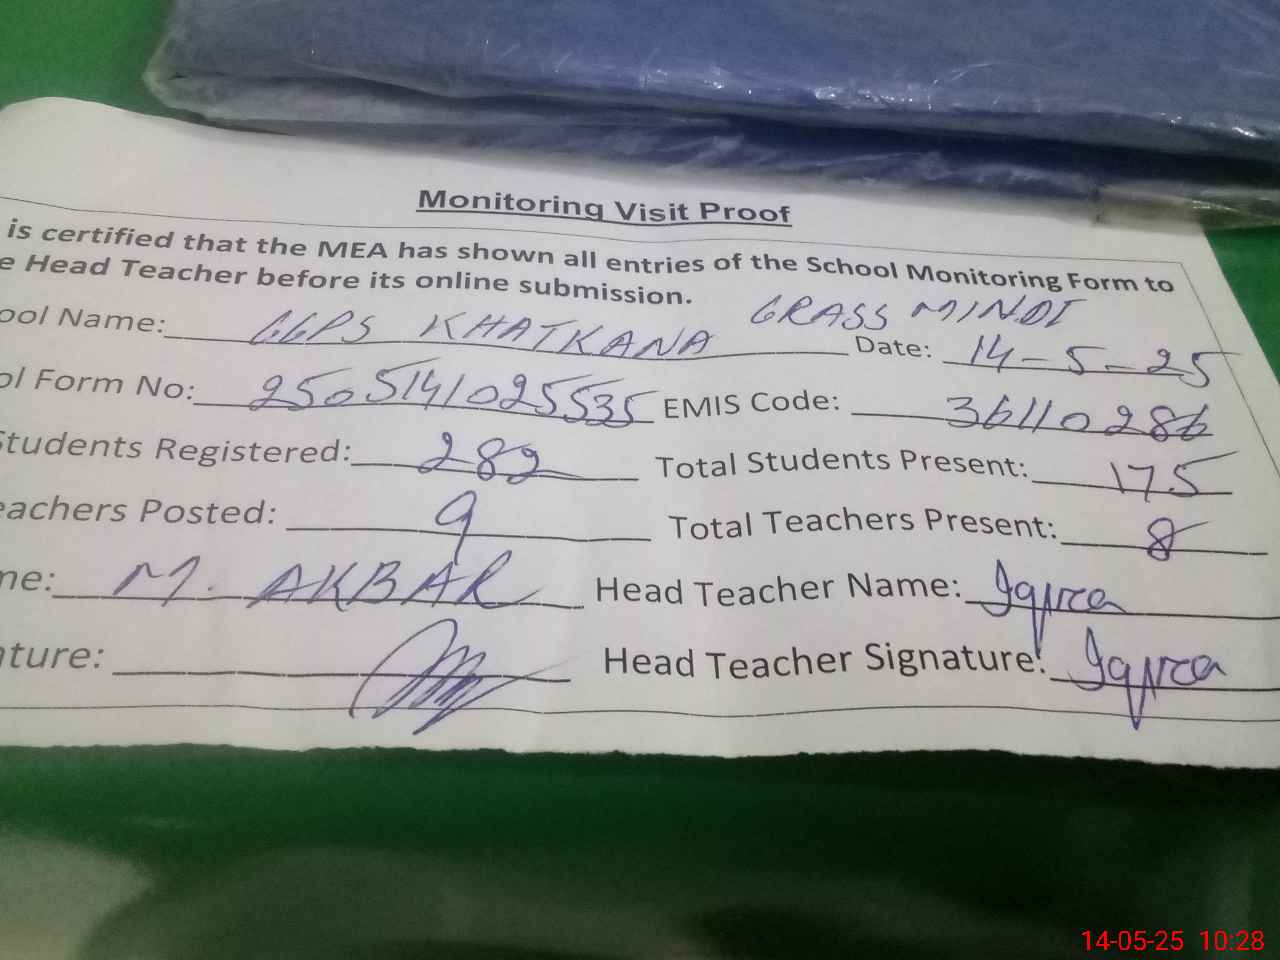 Monitoring Visit Proof
is certified that the MEA has shown all entries of the School Monitoring Form to
e Head Teacher before its online submission.
ool Name: GGPS KHATKANA GRASS MINDI Date: 14-5-25
ol Form No: 2505141025535 EMIS Code: 36110286
Students Registered: 282 Total Students Present: 175
eachers Posted: 9 Total Teachers Present: 8
me: M. AKBAR Head Teacher Name: Iqra
ature: Head Teacher Signature: Iqra
14-05-25 10:28